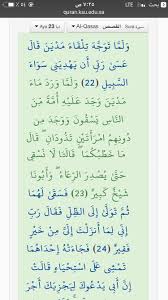 ٧:٢٥ ص
quran.ksu.edu.sa
سورة Sura القصص Al-Qasas
Aya 23 آية
وَلَمَّا تَوَجَّهَ تِلْقَاءَ مَدْيَنَ قَالَ
عَسَىٰ رَبِّي أَن يَهْدِيَنِي سَوَاءَ
السَّبِيلِ (22) وَلَمَّا وَرَدَ مَاءَ
مَدْيَنَ وَجَدَ عَلَيْهِ أُمَّةً مِّنَ
النَّاسِ يَسْقُونَ وَوَجَدَ مِن
دُونِهِمُ امْرَأَتَيْنِ تَذُودَانِ ۖ قَالَ
مَا خَطْبُكُمَا ۖ قَالَتَا لَا نَسْقِي
حَتَّىٰ يُصْدِرَ الرِّعَاءُ ۖ وَأَبُونَا
شَيْخٌ كَبِيرٌ (23) فَسَقَىٰ لَهُمَا
ثُمَّ تَوَلَّىٰ إِلَى الظِّلِّ فَقَالَ رَبِّ
إِنِّي لِمَا أَنزَلْتَ إِلَيَّ مِنْ خَيْرٍ
فَقِيرٌ (24) فَجَاءَتْهُ إِحْدَاهُمَا
تَمْشِي عَلَى اسْتِحْيَاءٍ قَالَتْ
إِنَّ أَبِي يَدْعُوكَ لِيَجْزِيَكَ أَجْرَ